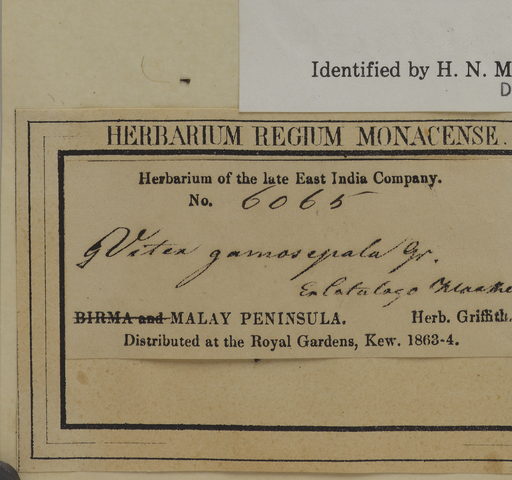 Identified by H. N. M
D
HERBARIUM REGIUM MONACENSE.
Herbarium of the late East India Company.
No. 6065
Vitex gamosepala Gr.
BIRMA and MALAY PENINSULA. Herb. Griffith.
Distributed at the Royal Gardens, Kew. 1863-4.